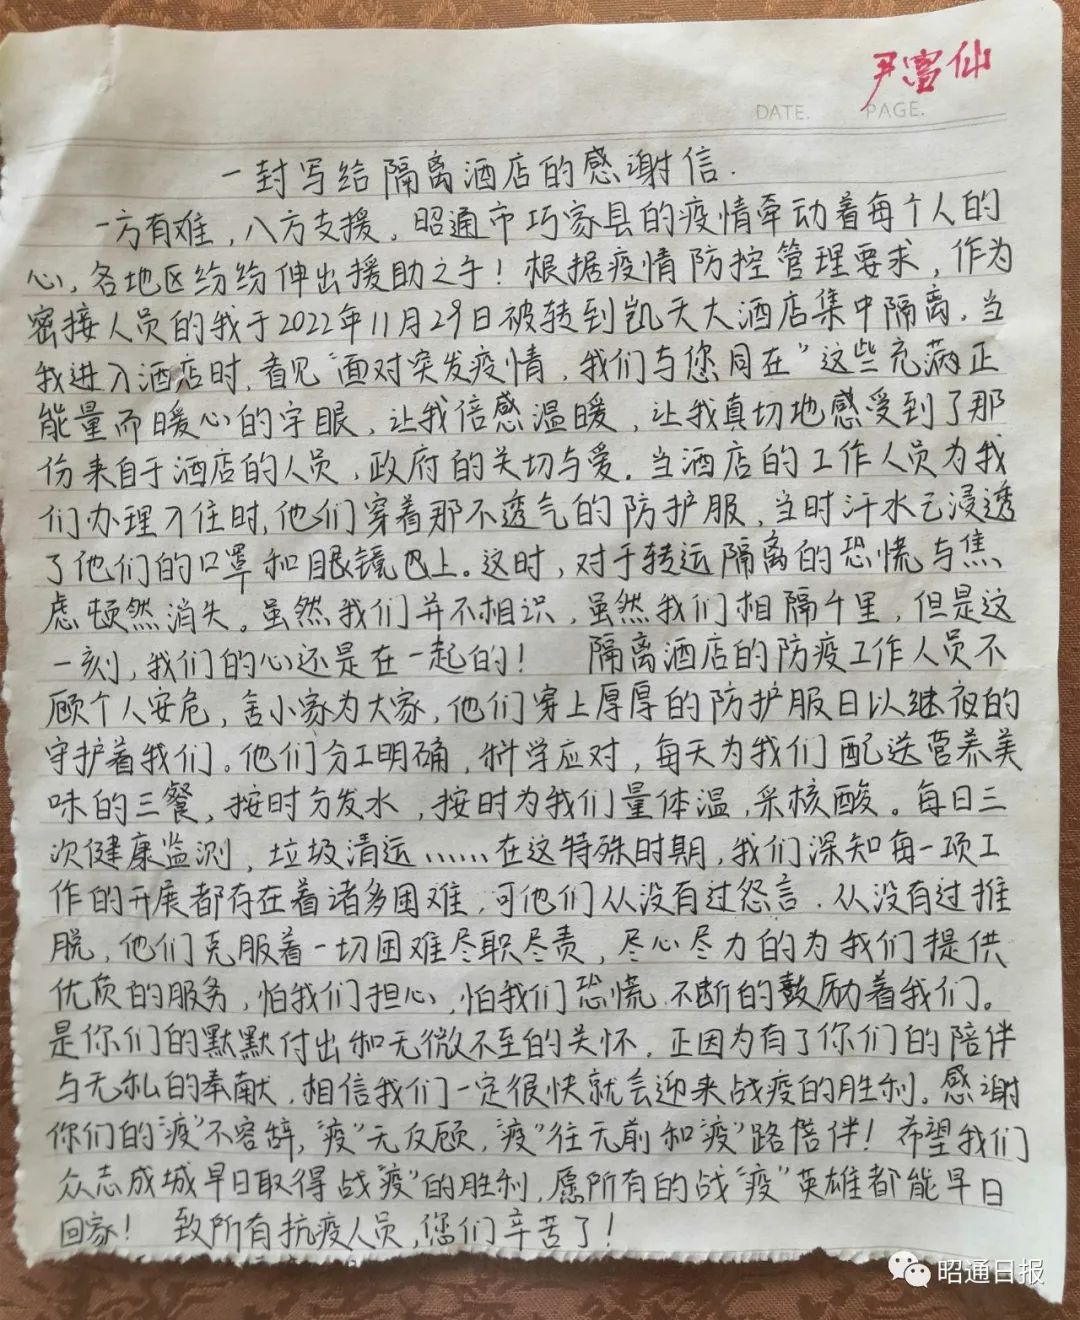 尹富仙
DATE. PAGE.
一封写给隔离酒店的感谢信.
一方有难,八方支援。昭通市巧家县的疫情牵动着每个人的
心,各地区纷纷伸出援助之手!根据疫情防控管理要求,作为
密接人员的我于2022年11月29日被转到凯天大酒店集中隔离.当
我进入酒店时,看见“面对突发疫情,我们与您同在”这些充满正
能量而暖心的字眼,让我倍感温暖,让我真切地感受到了那
份来自于酒店的人员,政府的关切与爱.当酒店的工作人员为我
们办理入住时,他们穿着那不透气的防护服,当时汗水已浸透
了他们的口罩和眼镜巴上。这时,对于转运隔离的恐慌与焦
虑顿然消失。虽然我们并不相识,虽然我们相隔千里,但是这
一刻,我们的心还是在一起的! 隔离酒店的防疫工作人员不
顾个人安危,舍小家为大家,他们穿上厚厚的防护服日以继夜的
守护着我们。他们分工明确,科学应对,每天为我们配送营养美
味的三餐,按时分发水,按时为我们量体温,采核酸。每日三
次健康监测,垃圾清运……在这特殊时期,我们深知每一项工
作的开展都存在着诸多困难,可他们从没有过怨言.从没有过推
脱,他们克服着一切困难尽职尽责,尽心尽力的为我们提供
优质的服务,怕我们担心,怕我们恐慌.不断的鼓励着我们。
是你们的默默付出和无微不至的关怀.正因为有了你们的陪伴
与无私的奉献,相信我们一定很快就会迎来战疫的胜利。感谢
你们的“疫”不容辞,“疫”无反顾,“疫”往无前和“疫”路陪伴!希望我们
众志成城早日取得战“疫”的胜利,愿所有的战“疫”英雄都能早日
回家! 致所有抗疫人员,您们辛苦了!
昭通日报